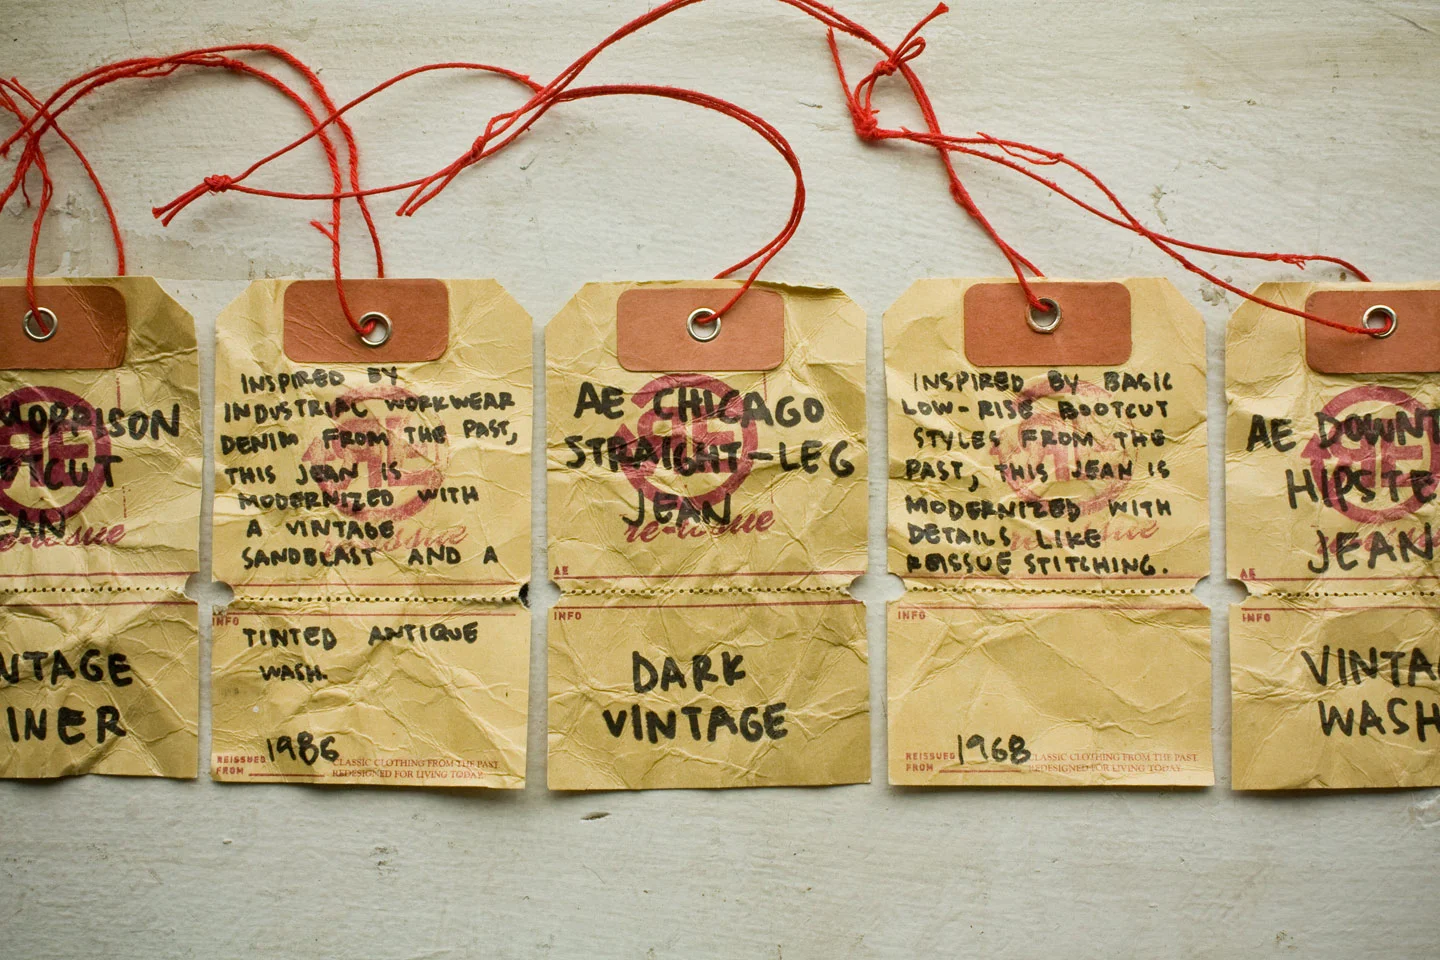 MORRISON
TCUT
EAN
re-issue
NTAGE
INER
INSPIRED BY
INDUSTRIAL WORKWEAR
DENIM FROM THE PAST,
THIS JEAN IS
MODERNIZED WITH
A VINTAGE
SANDBLAST AND A
re-issue
INFO
TINTED ANTIQUE
WASH.
REISSUED
FROM 1986
CLASSIC CLOTHING FROM THE PAST
REDESIGNED FOR LIVING TODAY.
AE CHICAGO
STRAIGHT-LEG
JEAN
re-issue
AE
INFO
DARK
VINTAGE
INSPIRED BY BASIC
LOW-RISE BOOTCUT
STYLES FROM THE
PAST, THIS JEAN IS
MODERNIZED WITH
DETAILS LIKE
REISSUE STITCHING.
re-issue
INFO
REISSUED
FROM 1968
CLASSIC CLOTHING FROM THE PAST
REDESIGNED FOR LIVING TODAY.
AE DOWNT
HIPSTE
JEAN
AE
INFO
VINTA
WASH